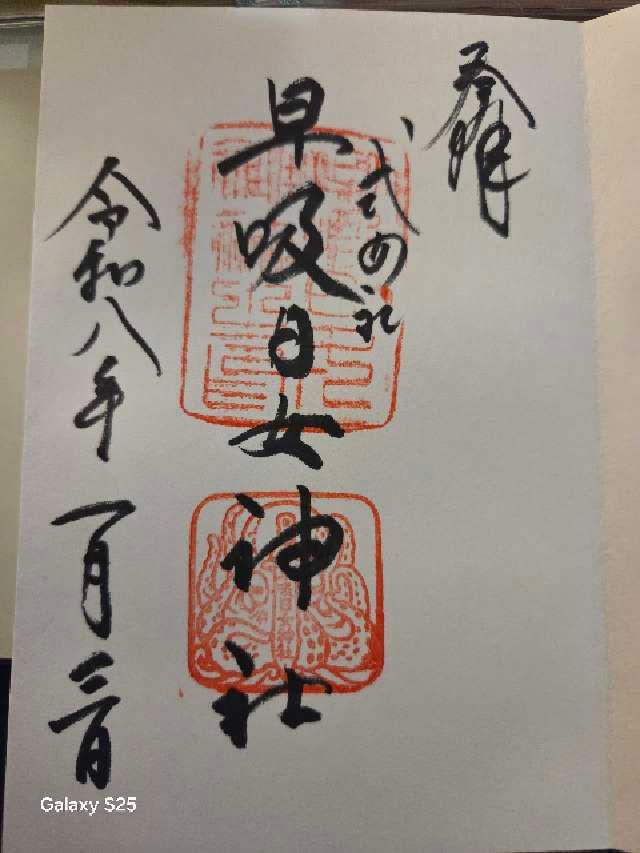 奉拝
式内社
早吸日女神社
令和八年一月三日
Galaxy S25